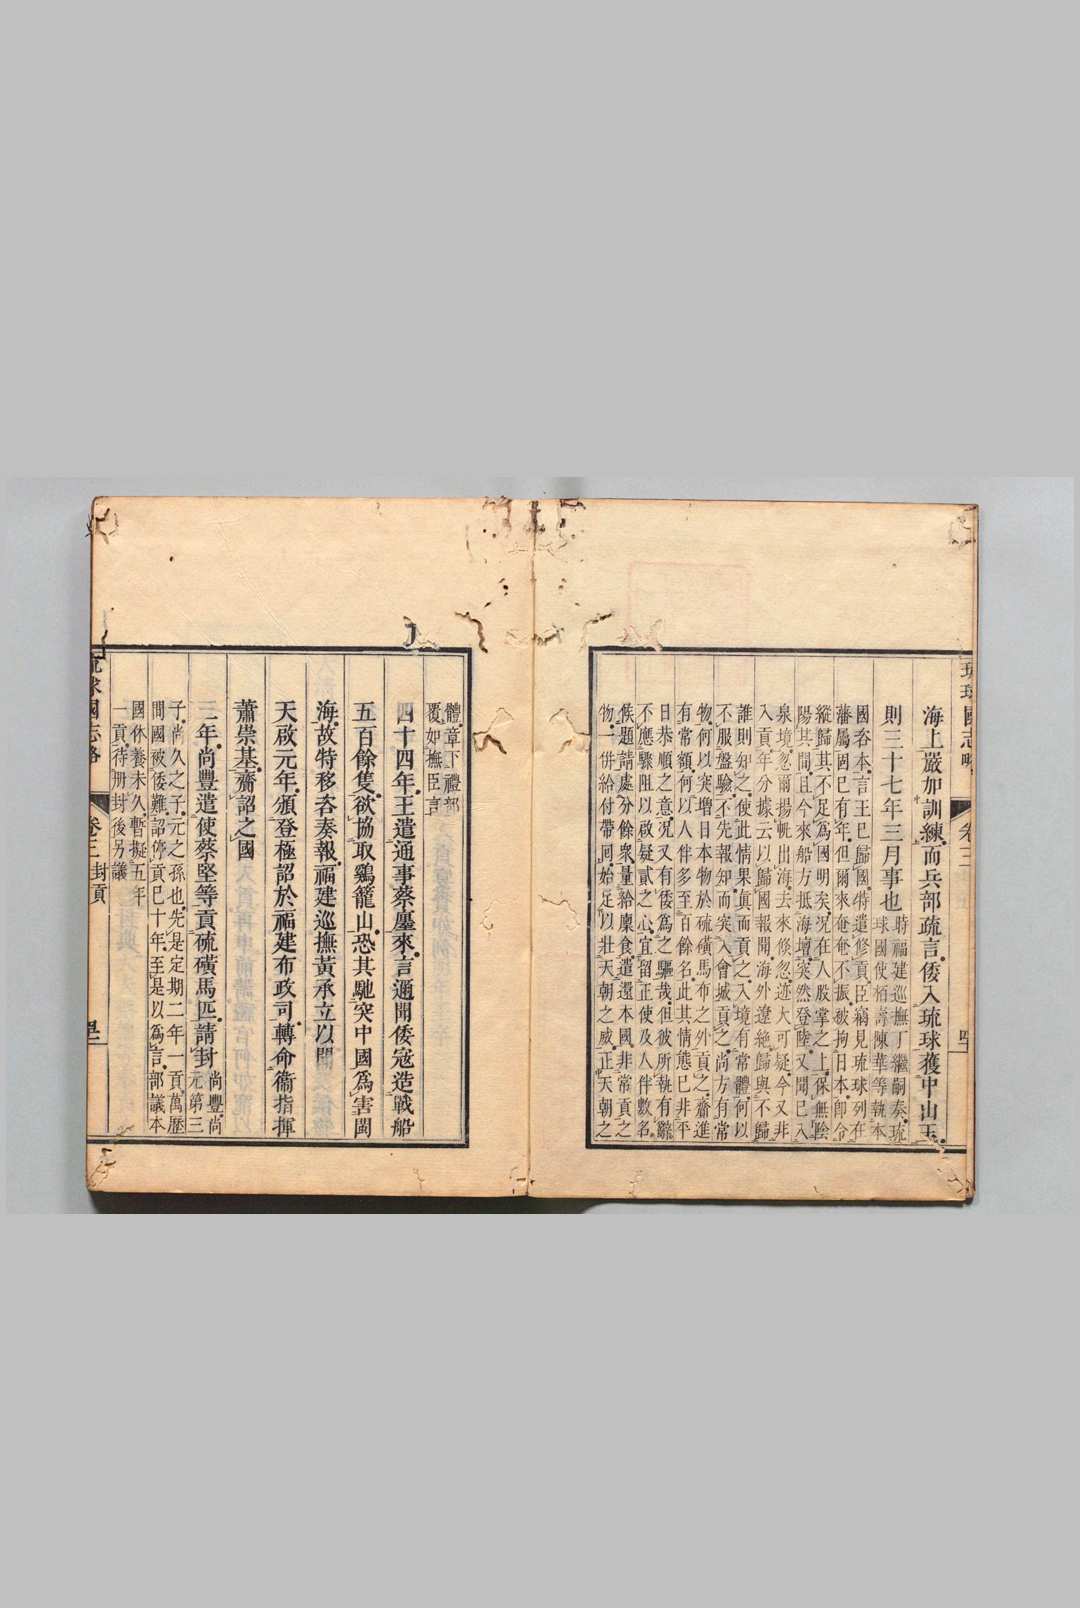 海上嚴加訓練而兵部疏言倭入琉球獲中山王
則三十七年三月事也
時福建巡撫丁繼嗣奏琉
球國使栢壽陳華等執本
國咨本言王已歸國特遣修貢臣竊見琉球列在
藩屬固已有年但爾來奄奄不振被拘日本即令
縱歸其不足為國明矣況在人股掌之上保無陰
陽其間且今來船方抵海壇突然登陸又聞已入
泉境忽爾揚帆出海去來倏忽迹大可疑今又非
入貢年分據云以歸國報聞海外遼絶歸與不歸
誰則知之使此情果真而貢之入境有常體何以
不服盤驗不先報知而突入會城貢之尚方有常
物何以突增日本物於硫磺馬布之外貢之齎進
有常額何以人伴多至百餘名此其情態已非平
日恭順之意況又有倭為之驅哉但彼所執有辭
不應驟阻以啟疑貳之心宜留正使及人伴數名
候題請處分餘衆量給廩食遣還本國非常貢之
物一併給付帶回始足以壯天朝之威正天朝之
體章下禮部
覆如撫臣言
四十四年王遣通事蔡廛來言邇聞倭寇造戰船
五百餘隻欲協取鷄籠山恐其馳突中國為害閩
海故特移咨奏報福建巡撫黃承立以聞
天啟元年頒登極詔於福建布政司轉命衞指揮
蕭崇基齎詔之國
三年尚豐遣使蔡堅等貢硫磺馬匹請封
尚豐尚
元第三
子尚久之子元之孫也先是定期二年一貢萬歷
間國被倭難詔停貢已十年至是以為言部議本
國休養未久暫擬五年
一貢待册封後另議
琉球國志略
卷三 封貢